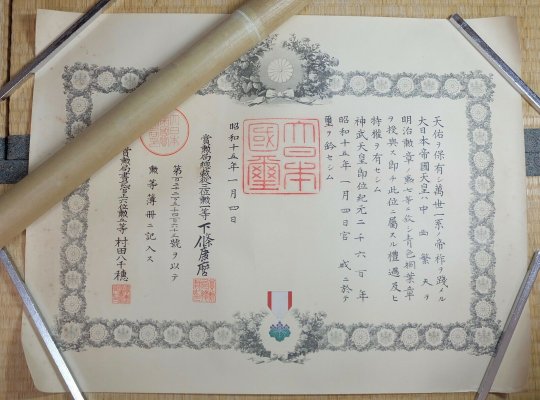 天佑ヲ保有シ萬世一系ノ帝祚ヲ踐メル
大日本帝國天皇ハ中西繁夫ヲ
明治勳章ノ勳七等ニ敍シ青色桐葉章
ヲ授與ス即チ此位ニ屬スル禮遇及ヒ
特權ヲ有セシム
神武天皇即位紀元二千六百年
昭和十五年一月四日宮城ニ於テ
璽ヲ鈐セシム
大日本國璽
昭和十五年一月四日
賞勳局總裁從三位勳一等下條康麿
號ヲ以テ
勲等簿冊ニ記入ス
賞勳局書記官 六位勳五等 村田八千穗